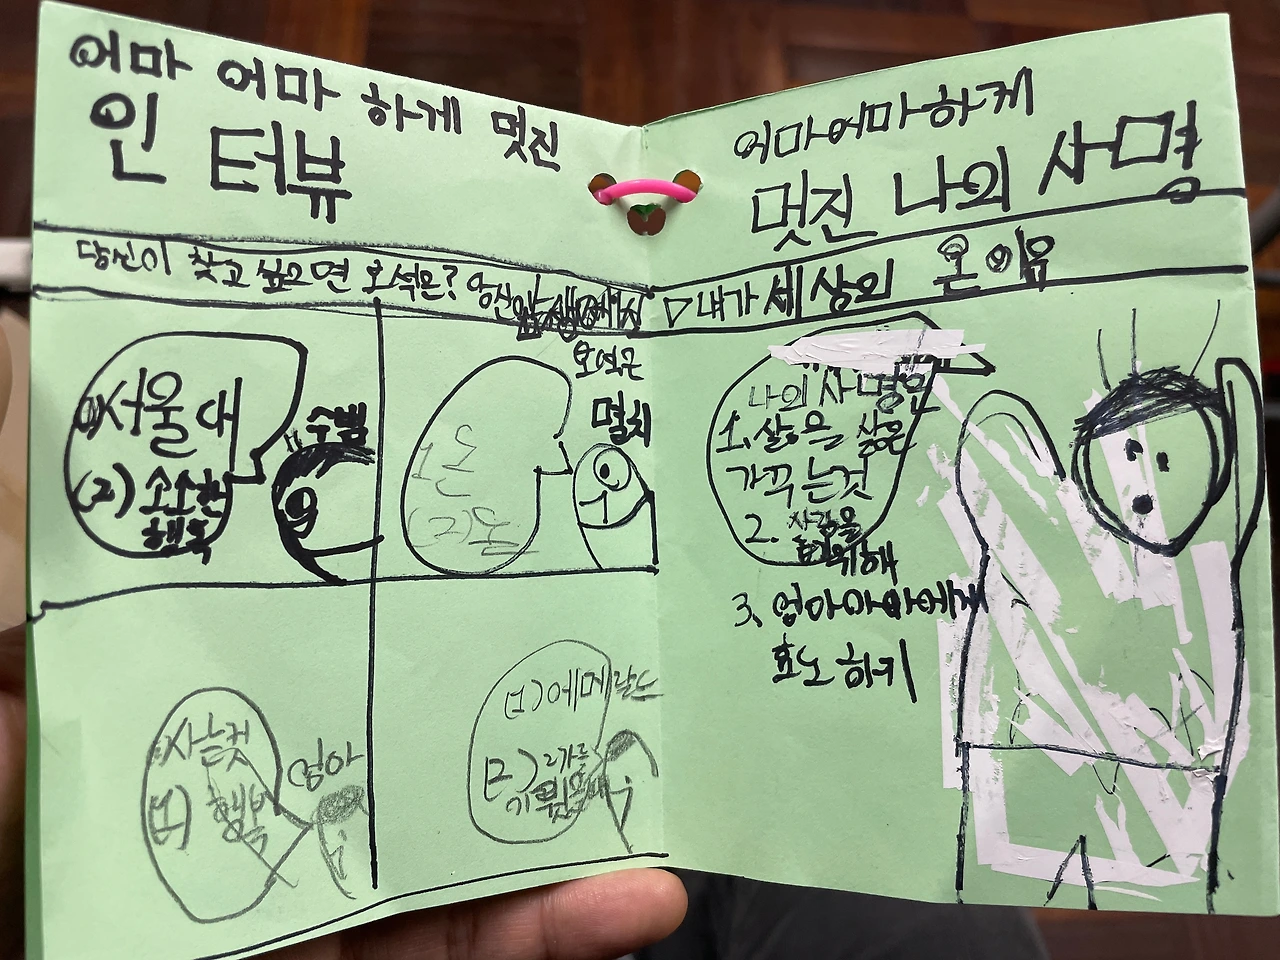 어마 어마 하게 멋진
인 터뷰
당신이 찾고 싶으면 보석은?
보석은
(1) 서울대
(2) 소소한
행복
수빈
멸치
1 돈
(2) 돈
사는것
행복
엄마
(1) 에메랄드
(2)
어마어마하게
멋진 나의 사명
▷내가 세상의 온 이유
나의 사명은
1. 삶을 삶은
가꾸는것
2. 사람을
위해
3. 엄마아빠에게
효도하기